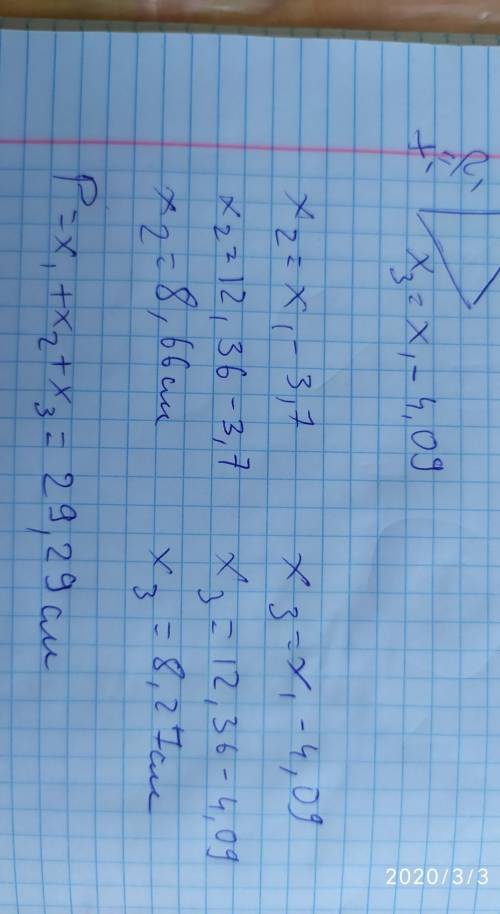 x₃ = x₁ - 4,09
x₂ = x₁ - 3,7 x₃ = x₁ - 4,09
x₂ = 12,36 - 3,7 x₃ = 12,36 - 4,09
x₂ = 8,66 см x₃ = 8,27 см
P = x₁ + x₂ + x₃ = 29,29 см
2020/3/3